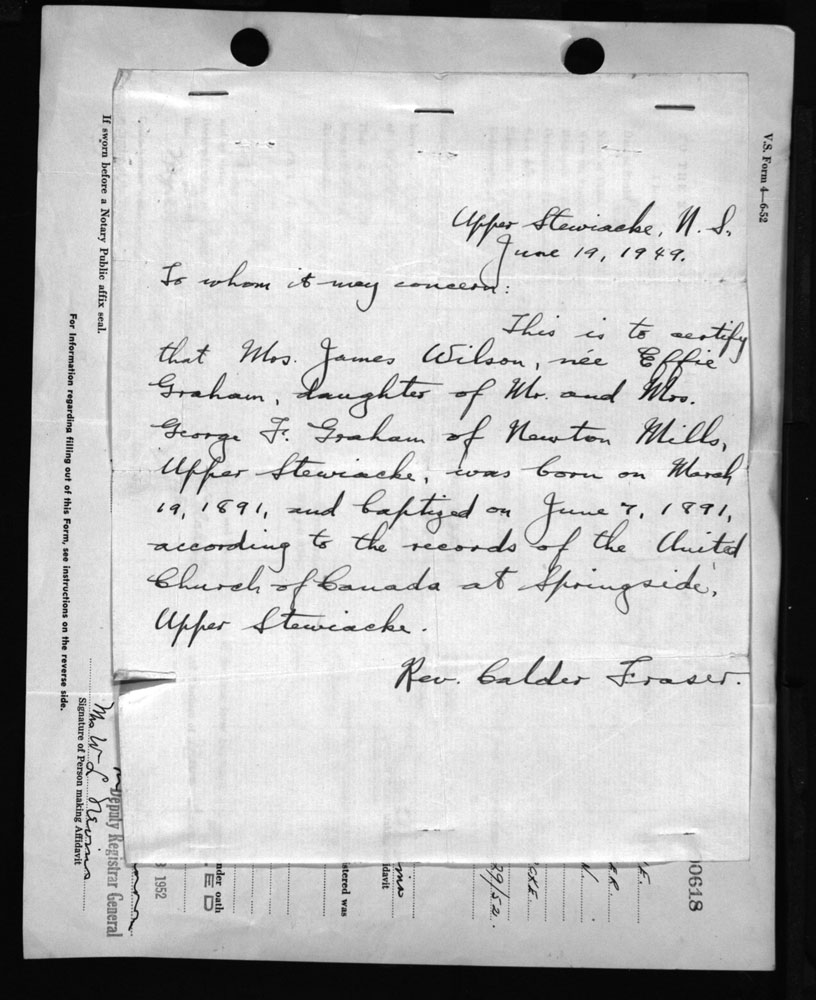 Upper Stewiacke, N. S.
June 19, 1949.
To whom it may concern:
This is to certify
that Mrs. James Wilson, née Effie
Graham, daughter of Mr. and Mrs.
George F. Graham of Newton Mills,
Upper Stewiacke, was born on March
19, 1891, and baptized on June 7, 1891,
according to the records of the United
Church of Canada at Springside,
Upper Stewiacke.
Rev. Calder Fraser.
V.S. Form 4—6-52
00618
E.
ER.
N.
CKE.
29/52.
idavit
istered was
nder oath
ED
3 1952
Deputy Registrar General
Mrs W L
Signature of Person making Affidavit
If sworn before a Notary Public affix seal.
For Information regarding filling out of this Form, see instructions on the reverse side.